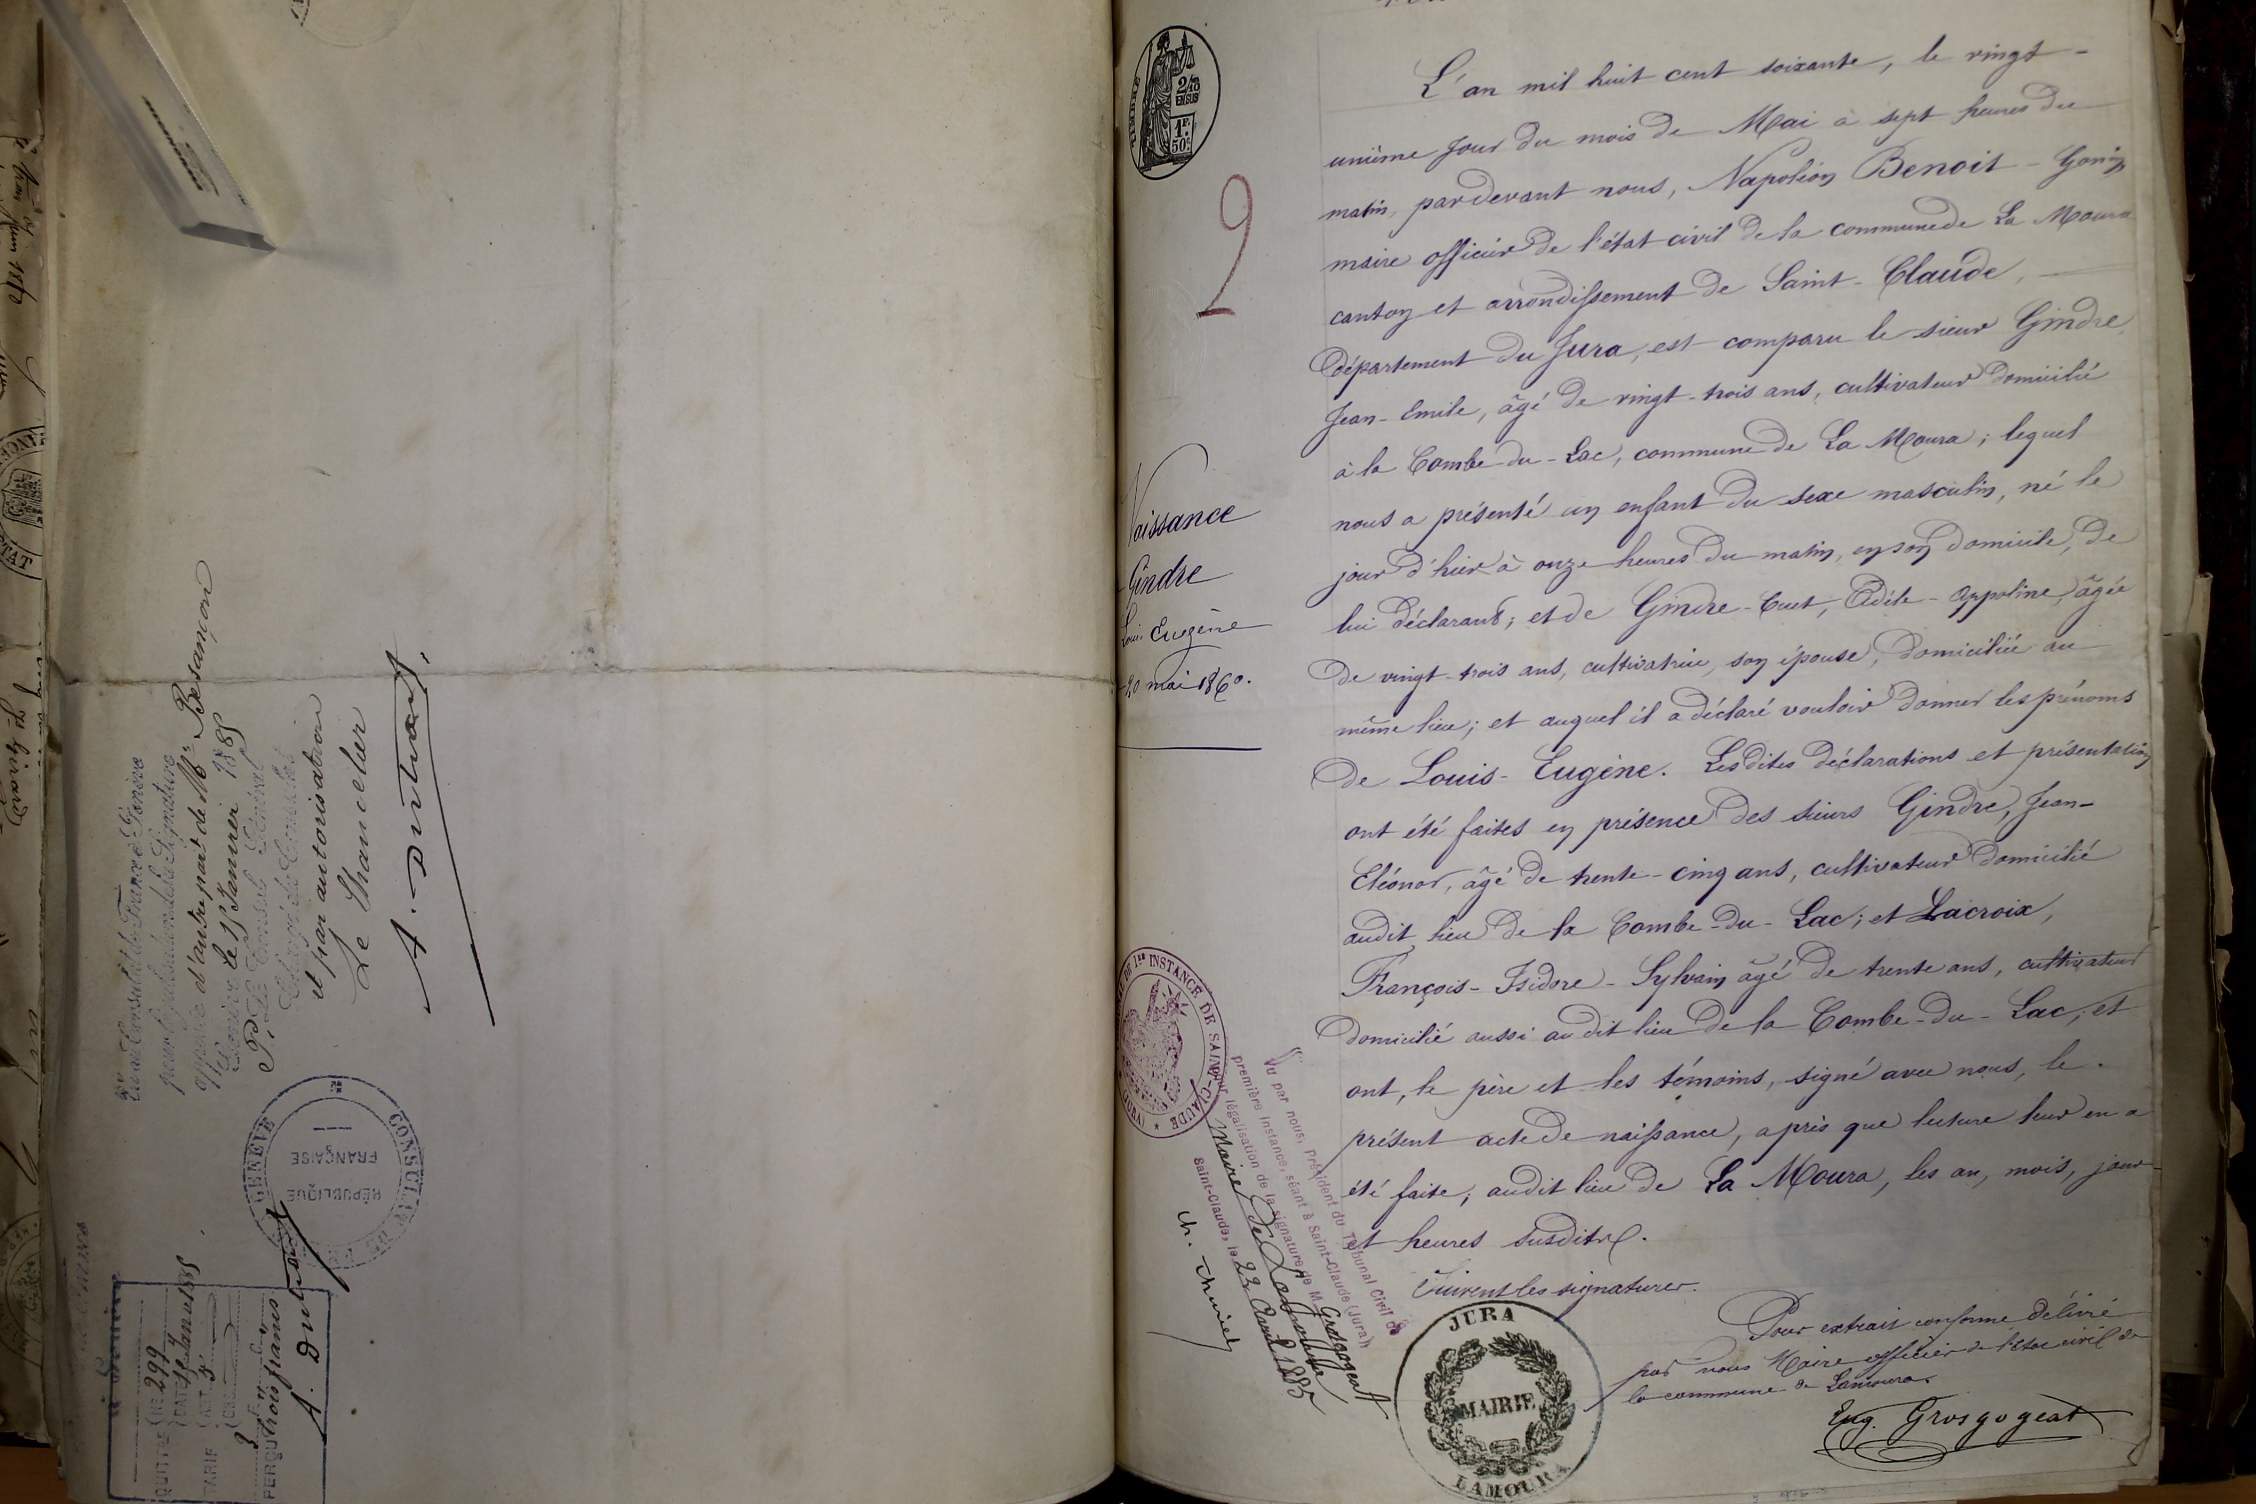 L'an mil huit cent soixante, le vingt-
unième jour du mois de Mai à sept heures du
matin, pardevant nous, Napoléon Benoit-Gonin
maire officier de l'état civil de la commune de La Moura
canton et arrondissement de Saint-Claude,
Département du Jura, est comparu le sieur Gindre,
Jean-Emile, âgé de vingt-trois ans, cultivateur domicilié
à la Combe-du-Lac, commune de La Moura; lequel
nous a présenté un enfant du sexe masculin, né le
jour d'hier à onze heures du matin, en son domicile, de
lui déclarant; et de Gindre-Cuet, Adèle-Appoline, âgée
de vingt-trois ans, cultivatrice, son épouse, domiciliée au
même lieu; et auquel il a déclaré vouloir donner les prénoms
de Louis-Eugène. Lesdites déclarations et présentation
ont été faites en présence des sieurs Gindre, Jean-
Eléonor, âgé de trente-cinq ans, cultivateur domicilié
audit lieu de la Combe-du-Lac; et Lacroix,
François-Isidore-Sylvain âgé de trente ans, cultivateur
domicilié aussi audit lieu de la Combe-du-Lac; et
ont, le père et les témoins, signé avec nous, le
présent acte de naissance, après que lecture leur en a
été faite; audit lieu de La Moura, les an, mois, jour
et heures susdits.
Suivent les signatures.
Pour extrait conforme délivré
par nous Maire officier de l'état civil de
la commune de Lamoura.
Eug. Grosgogeat
JURA
MAIRIE
LAMOURA
TIMBRE
2/10
EN SUS
1F.
50c.
2
Naissance
Gindre
Louis Eugène
20 mai 1860.
DE 1ère INSTANCE DE SAINT-CLAUDE * (JURA)
Vu par nous, Président du Tribunal Civil de
première instance, séant à Saint-Claude (Jura)
pour légalisation de la signature de M. Grosgogeat
Maire de Lamoura
Saint-Claude, le 23 Avril 1885
Vu au Consulat de France à Genève
pour légalisation de la Signature
apposée d'autre part de Mr. Besançon
Genève le 17 Janvier 1885
P. Le Consul Général
Chargé du Consulat
et par autorisation
Le Chancelier
CONSULAT DE GENEVE
RÉPUBLIQUE
FRANÇAISE
à Genève
N° 299
DATE 17 Janvier 1885
TARIF ART.
PERÇU trois francs